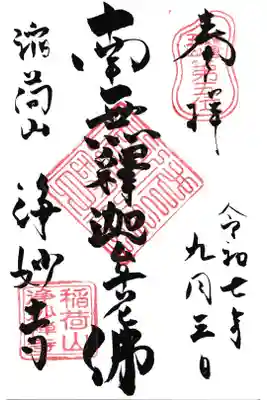 奉拝
令和七年
九月三日
南無釋迦牟尼佛
稲荷山
浄妙寺
稲荷山
浄妙禅寺